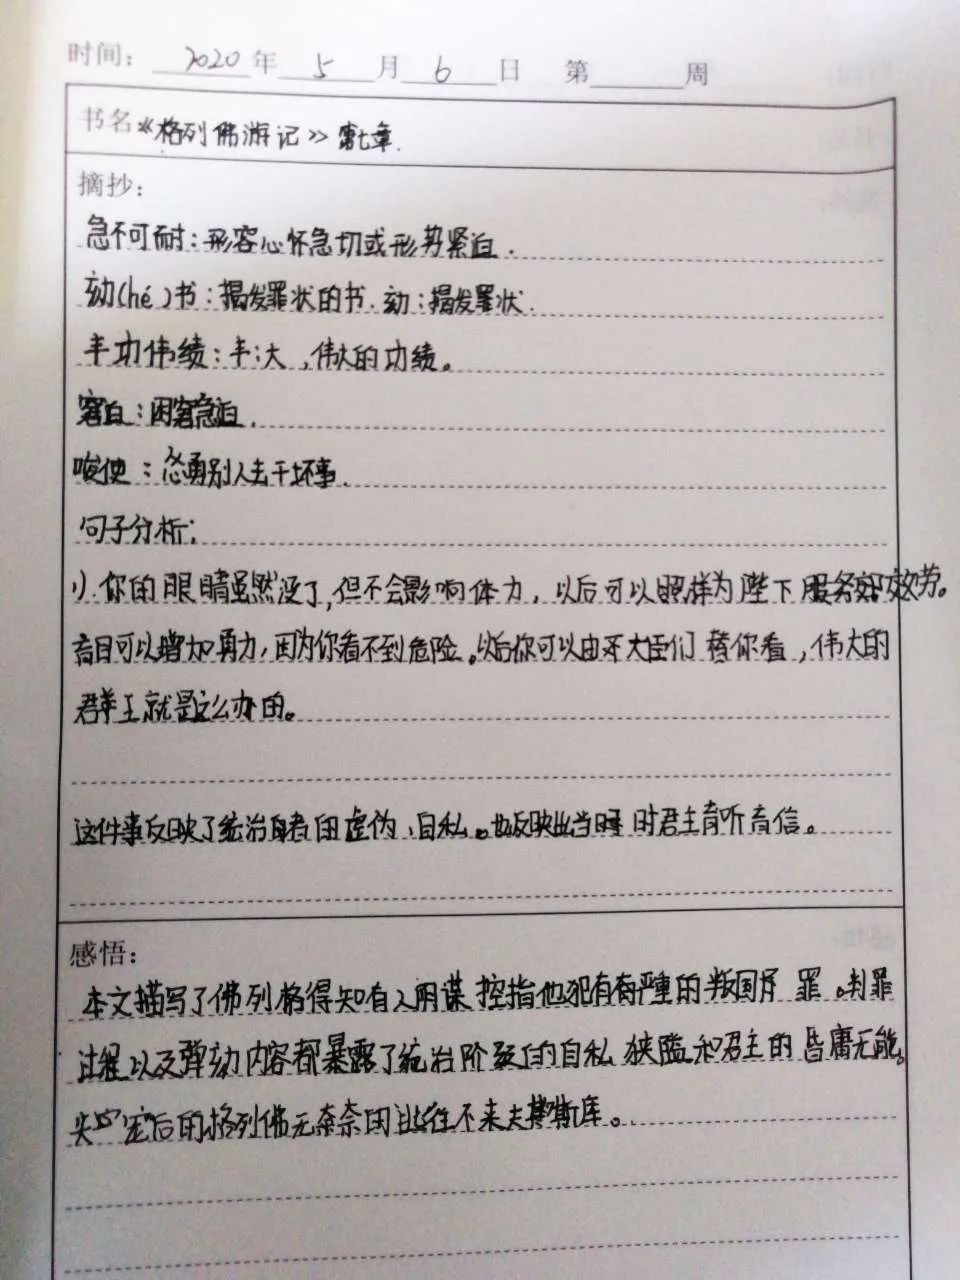 时间：2020年5月6日 第 周
书名《格列佛游记》第七章.
摘抄：
急不可耐：形容心怀急切或形势紧迫.
劾(hé)书：揭发罪状的书.劾：揭发罪状.
丰功伟绩：丰大,伟大的功绩。
窘迫：困窘急迫.
唆使：怂恿别人去干坏事.
句子分析:
1).你的眼睛虽然没了,但不会影响体力，以后可以照样为陛下服务效劳。
盲目可以增加勇力,因为你看不到危险。以后你可以由大臣们替你看，伟大的
君主就是这么办的。
这件事反映了统治者的虚伪、自私。也反映出当时君主盲听盲信。
感悟：
本文描写了佛列格得知有人阴谋控指他犯有严重的叛国罪。判罪
过程以及弹劾内容都暴露了统治阶级的自私狭隘和君主的昏庸无能。
失宠后的格列佛无奈的逃往不来夫斯库。